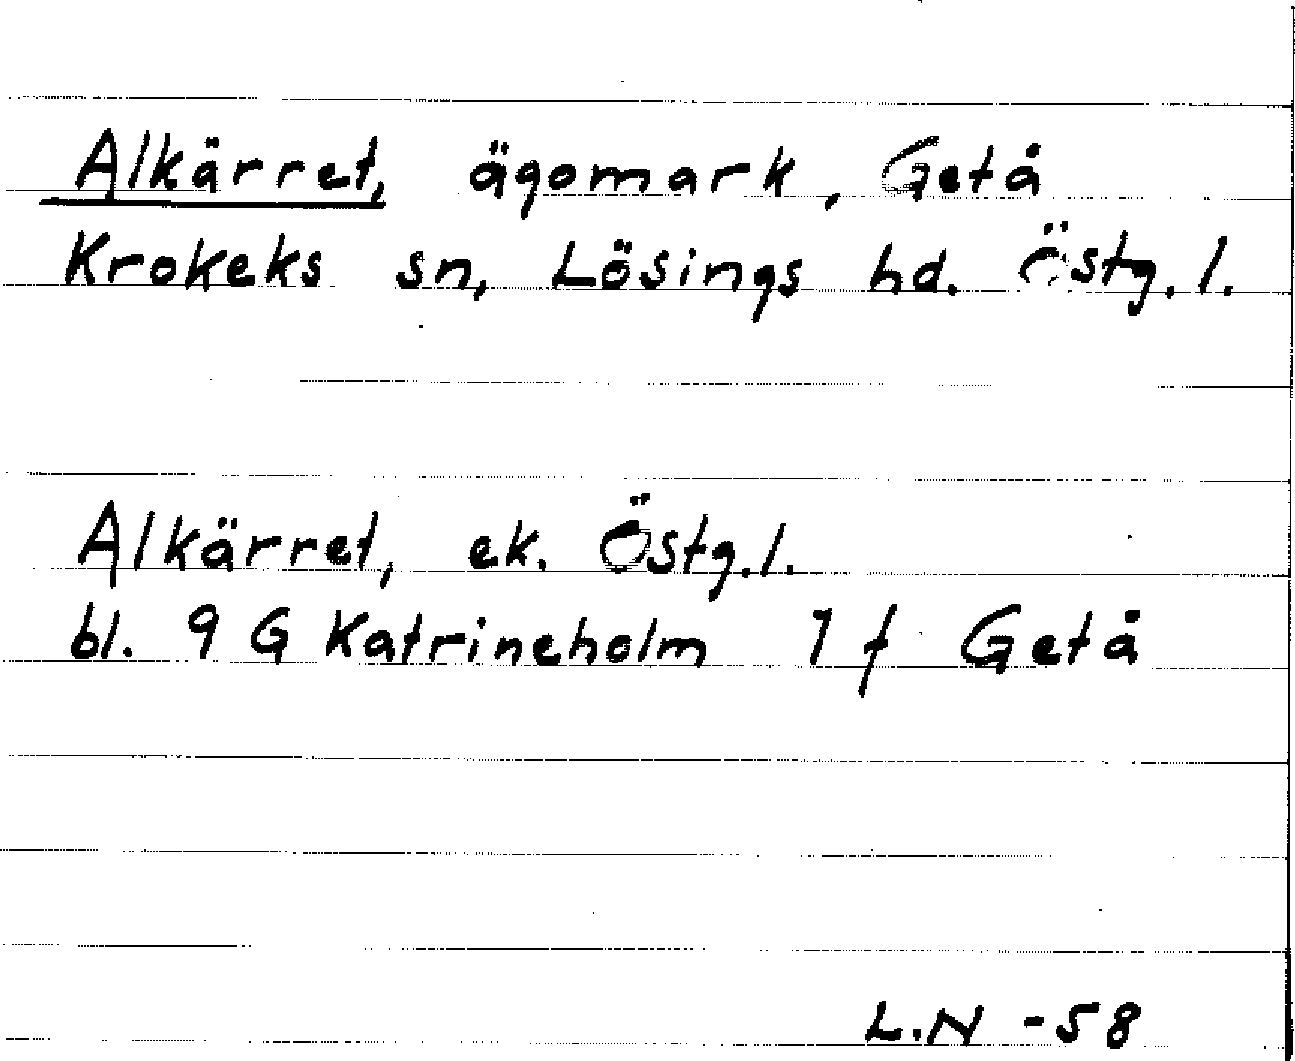 Alkärret, ägomark, Getå
Krokeks sn, Lösings hd. Östg. l.
Alkärret, ek. Östg. l.
bl. 9 G Katrineholm 1 f Getå
L.N -58